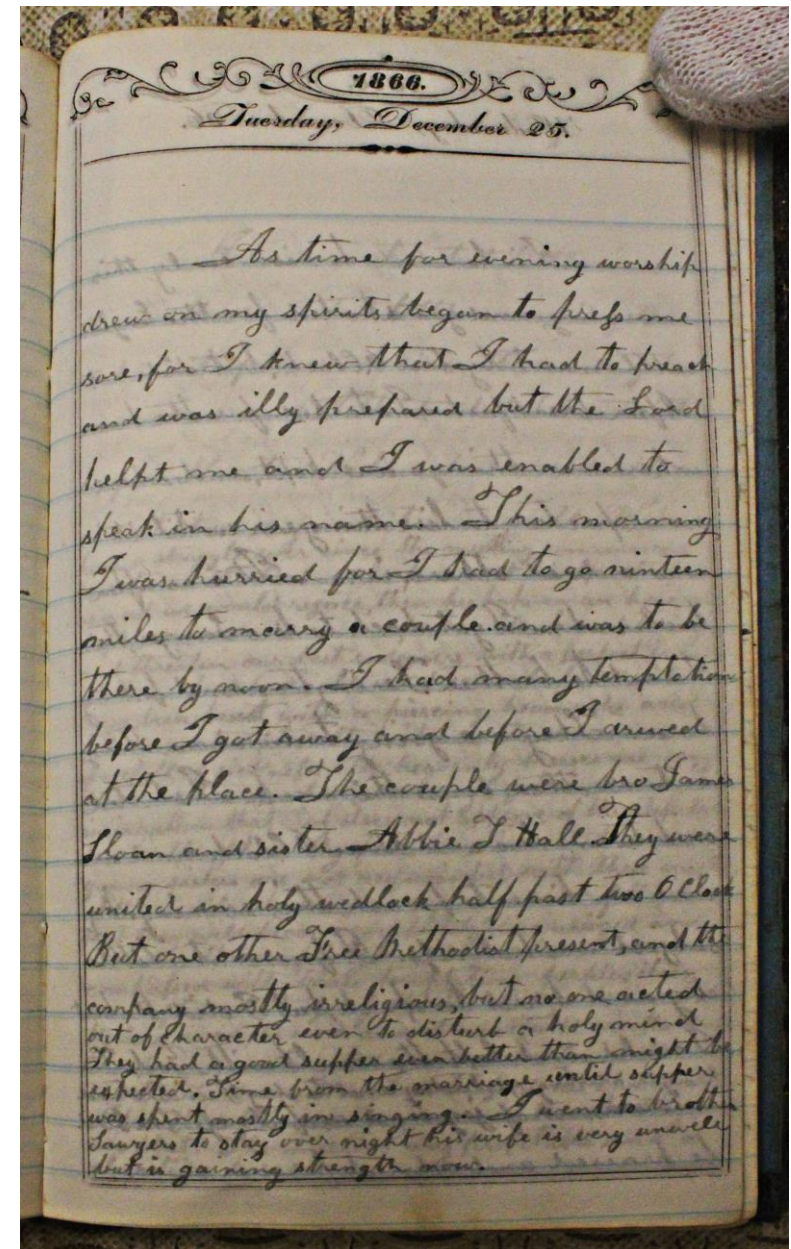 1866.
Tuesday, December 25.
As time for evening worship
drew on my spirits began to press me
sore, for I knew that I had to preach
and was illy prepared but the Lord
helpt me and I was enabled to
speak in his name. This morning
I was hurried for I had to go ninteen
miles to marry a couple and was to be
there by noon. I had many temptation
before I got away and before I arived
at the place. The couple were bro James
Sloan and sister Abbie T Hall. They were
united in holy wedlock half past two O Clock
But one other Free Methodist present, and the
company mostly irreligious, but no one acted
out of character even to disturb a holy mind
They had a good supper even better than might be
expected. Time from the marriage until supper
was spent mostly in singing. I went to brother
Sawyers to stay over night his wife is very unwell
but is gaining strength now.